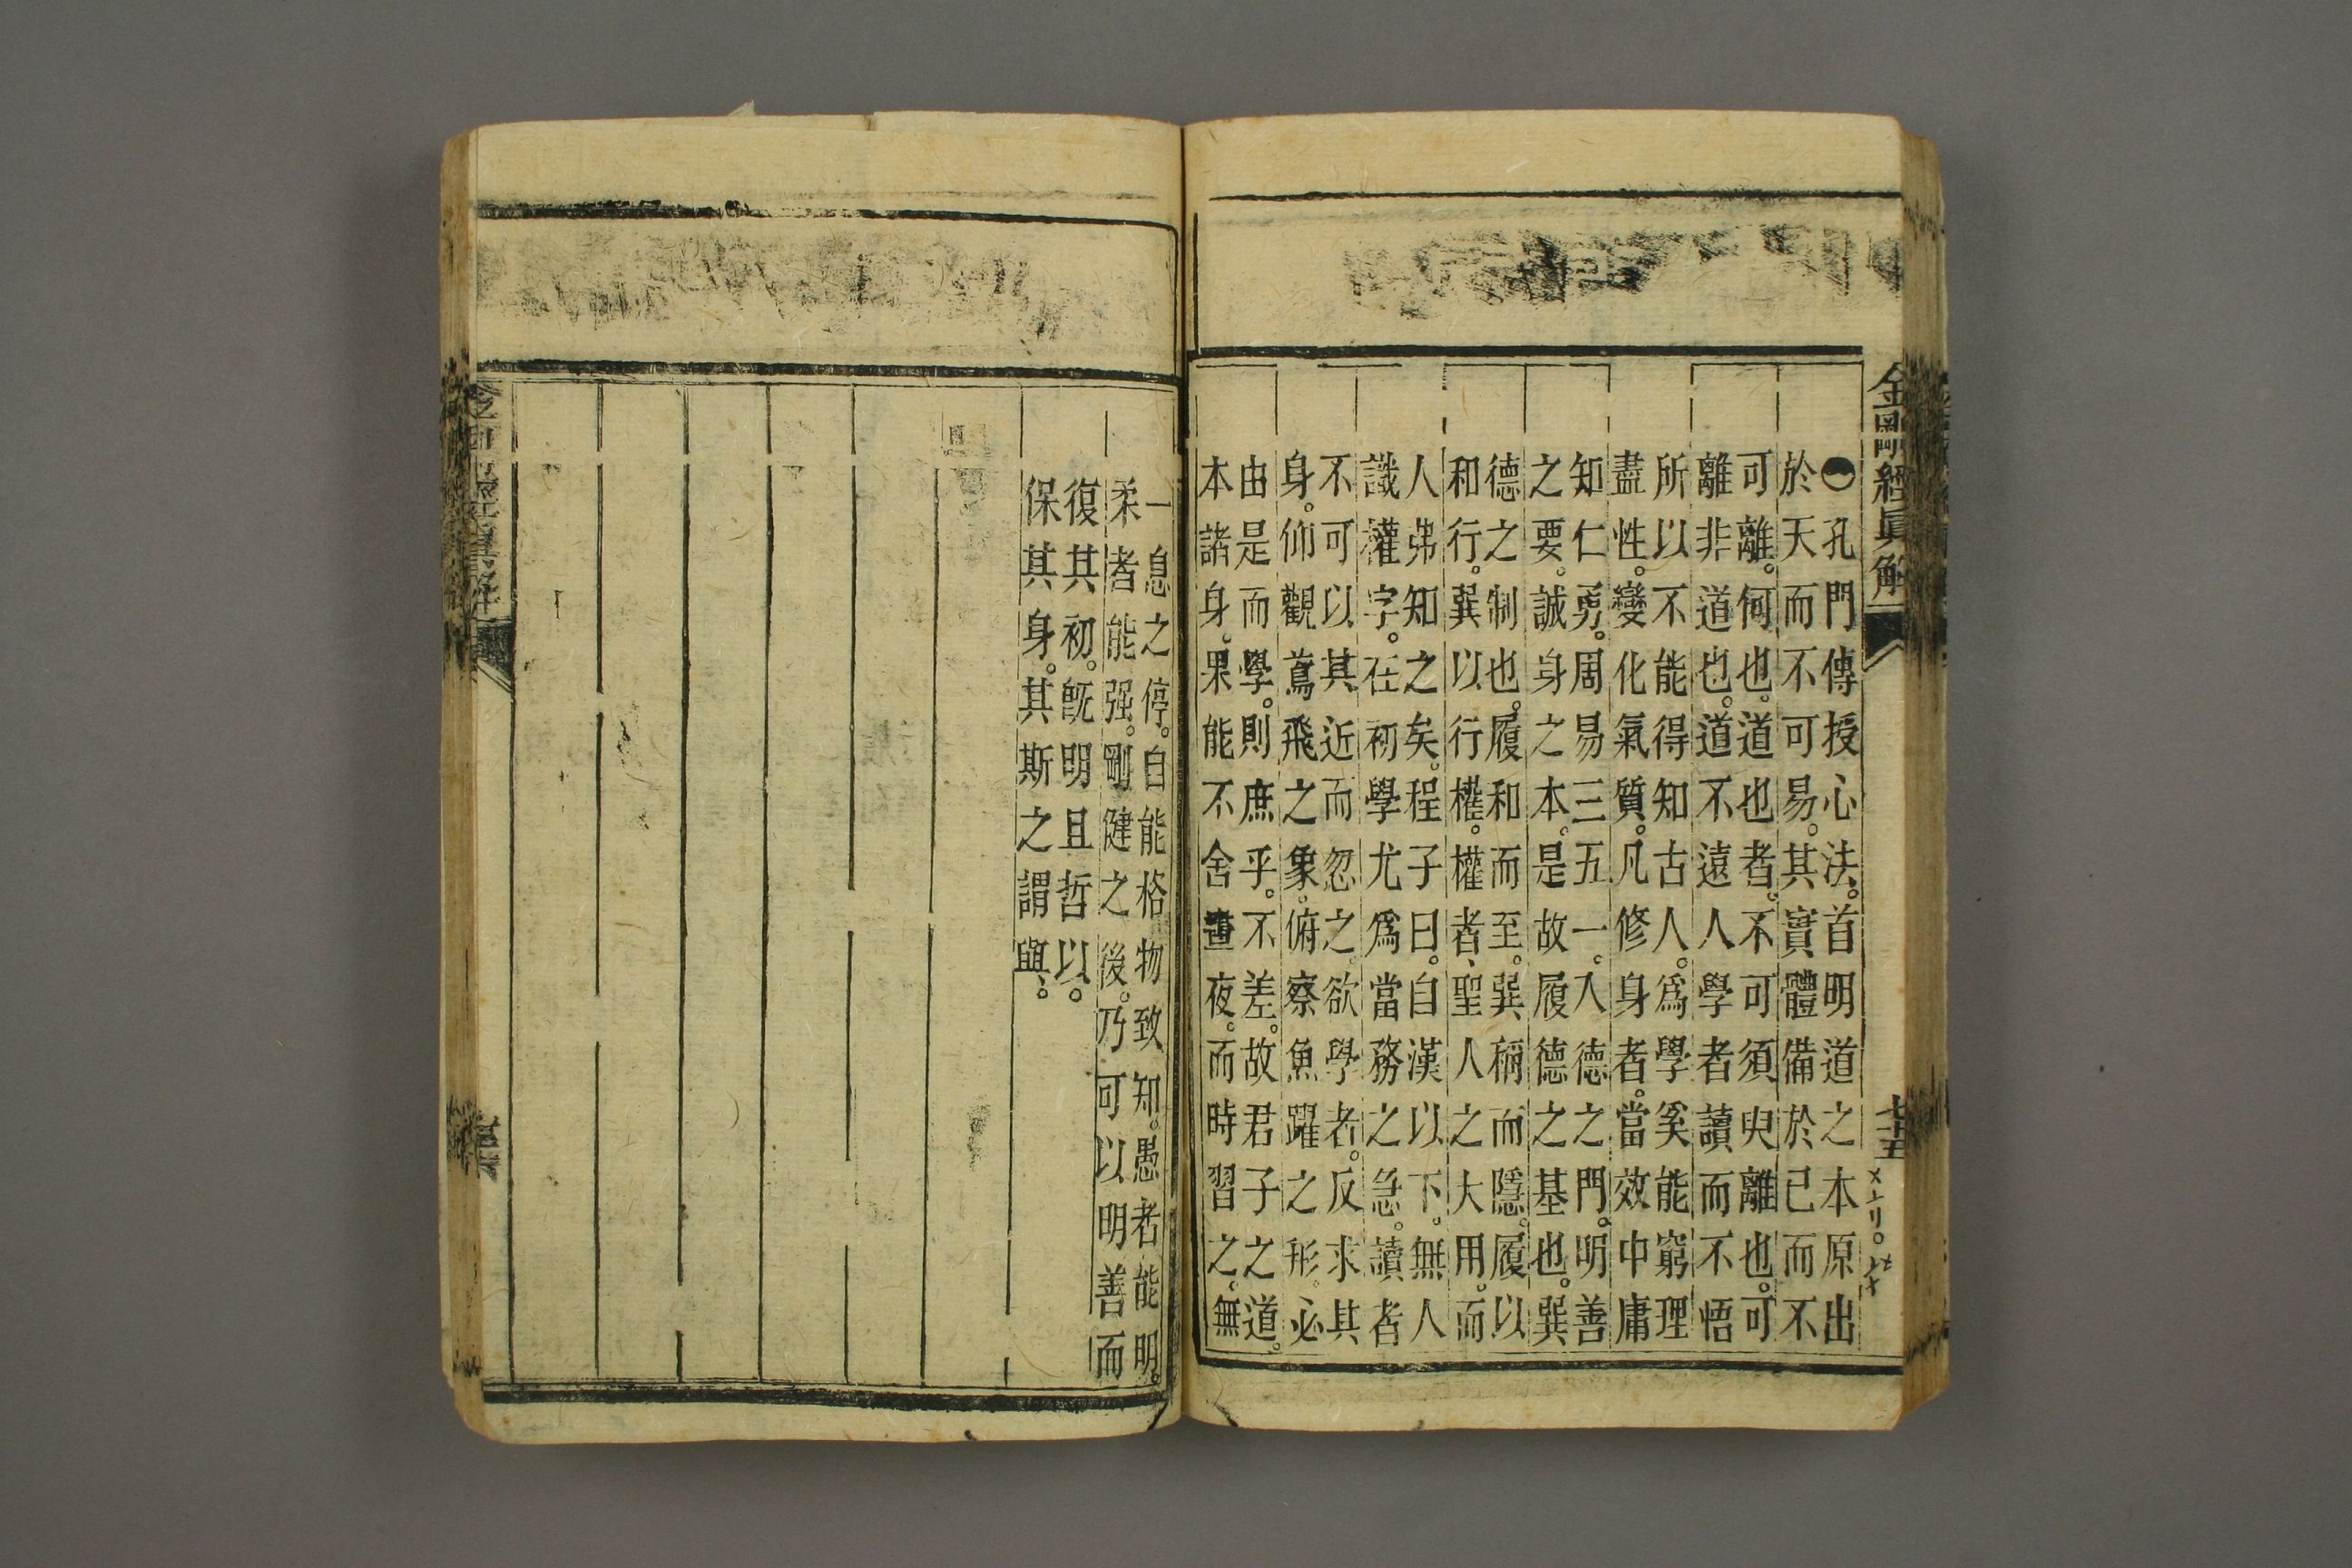 金剛經眞解
孔門傳授心法。首明道之本原出
於天而不可易。其實體備於己而不
可離。何也。道也者。不可須臾離也。可
離非道也。道不遠人學者讀而不悟
所以不能得知古人。爲學奚能窮理
盡性。變化氣質。凡修身者。當效中庸
知仁勇。周易三五一。入德之門。明善
之要。誠身之本。是故履德之基也。巽
德之制也。履和而至。巽稱而隱。履以
和行。巽以行權。權者、聖人之大用。而
人弗知之矣。程子曰。自漢以下。無人
識權字。在初學尤爲當務之急。讀者
不可以其近而忽之。欲學者。反求其
身。仰觀鳶飛之象。俯察魚躍之形。必
由是而學。則庶乎。不差。故君子之道。
本諸身。果能不舍晝夜。而時習之。無
七十五
一息之停。自能格物致知。愚者能明。
柔者能强。剛健之後。乃可以明善而
復其初。旣明且哲以。
保其身。其斯之謂與、。